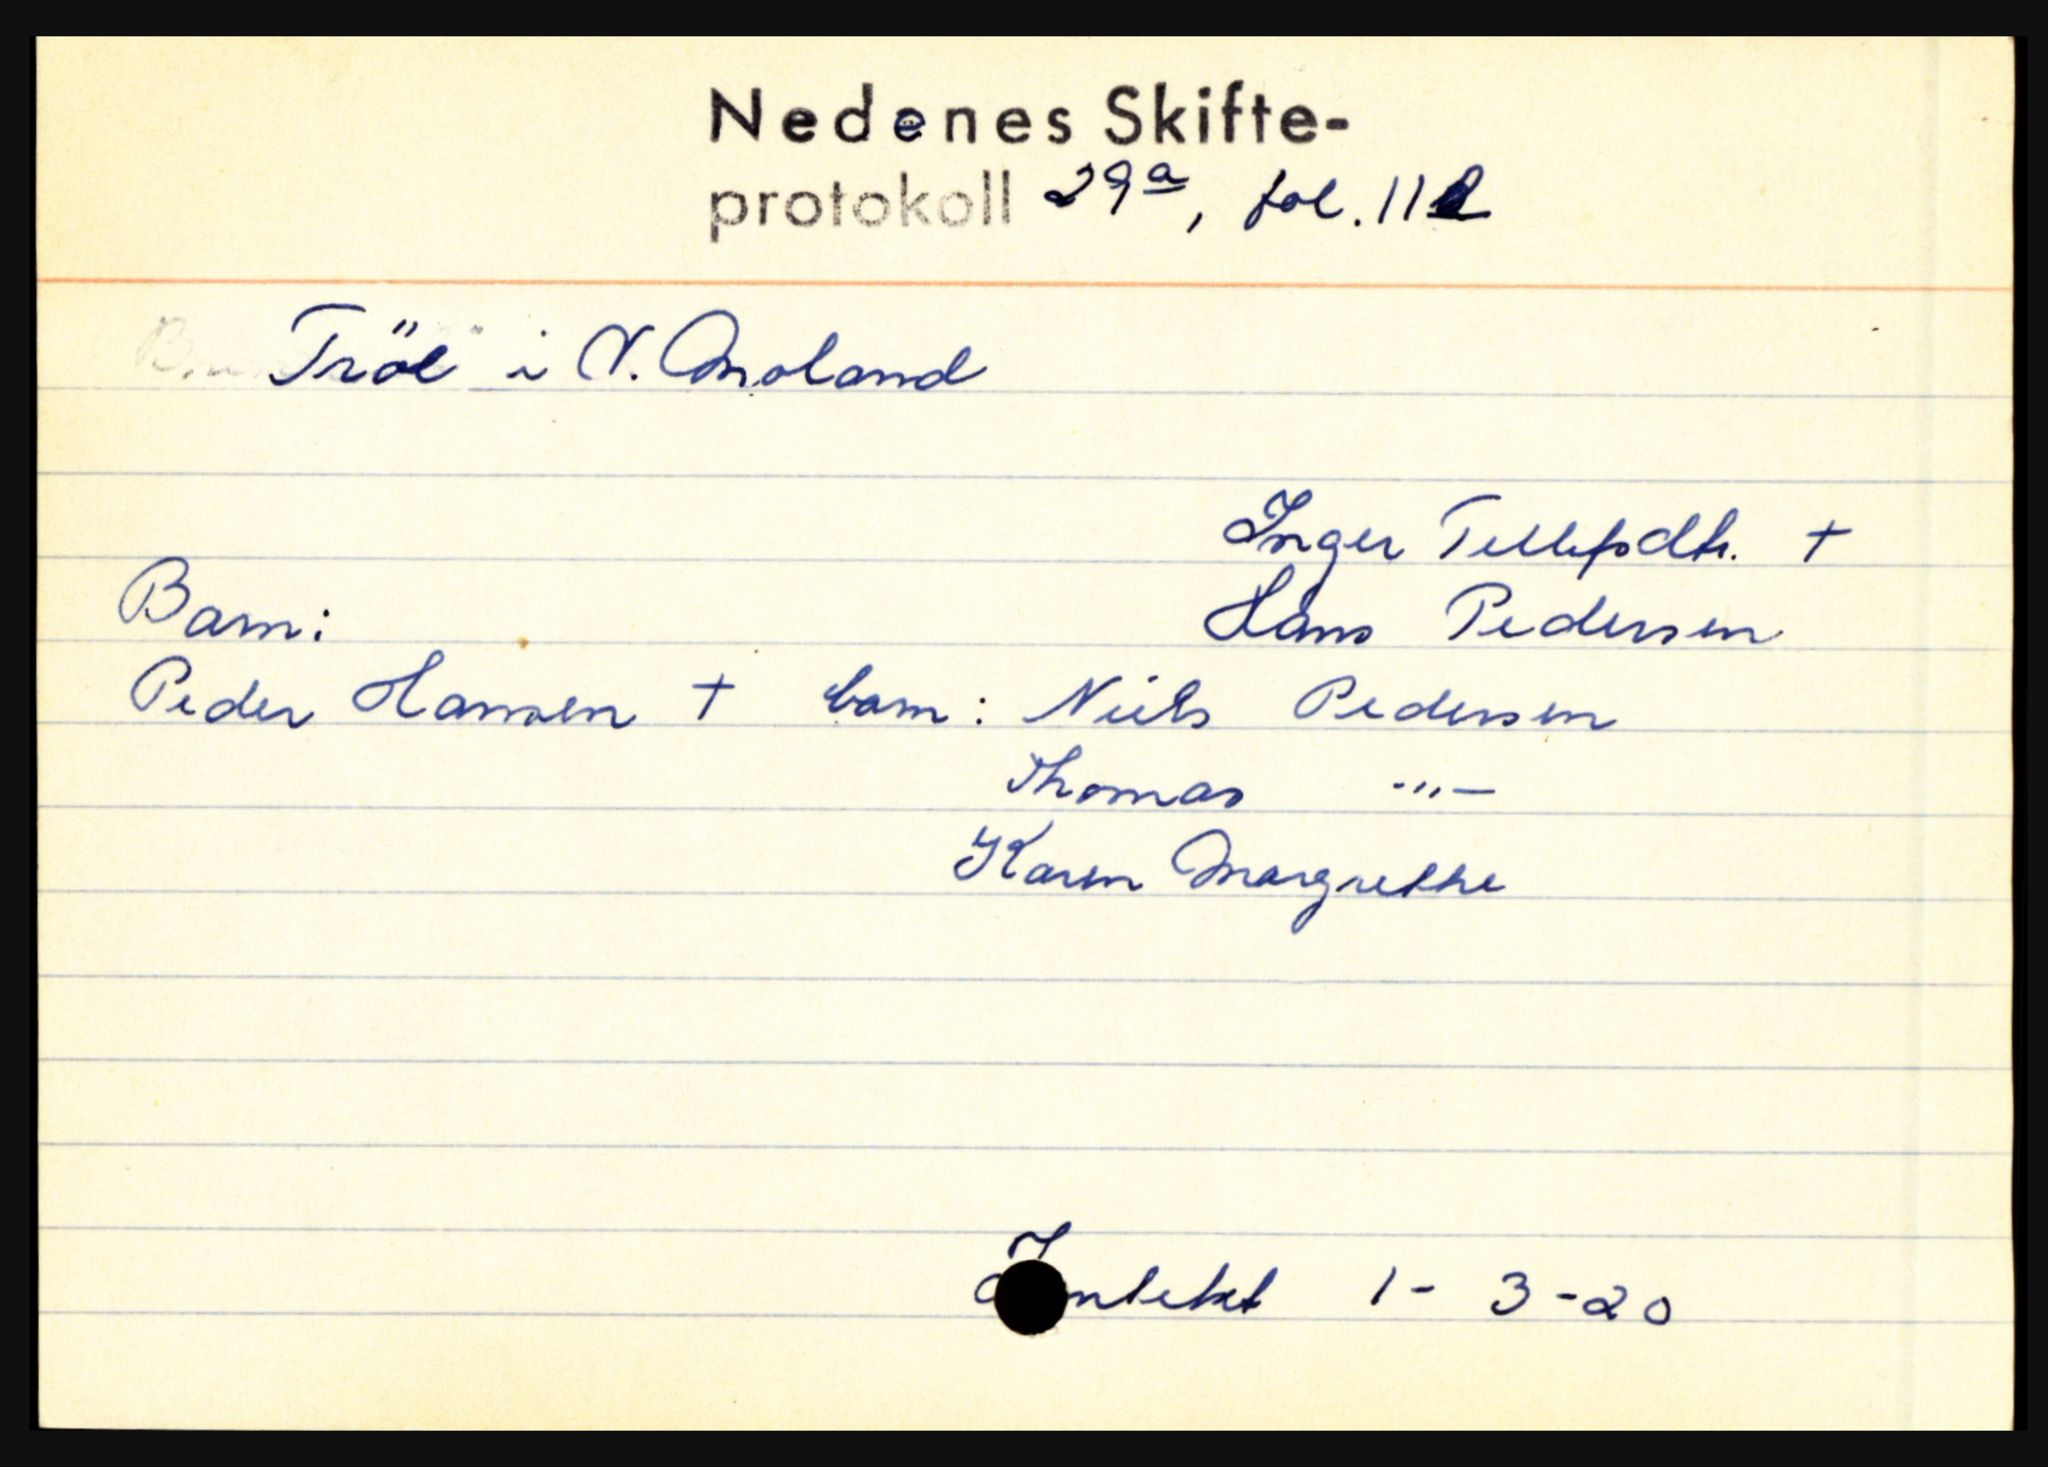 Nedenes Skifte-
protokoll 29a, fol. 112
Tröl i N. Moland
Inger Tellefsdtr. †
Barn:
Hans Pedersen
Peder Hansen † barn: Niels Pedersen
Thomas -"-
Karen Margrethe
1-3-20